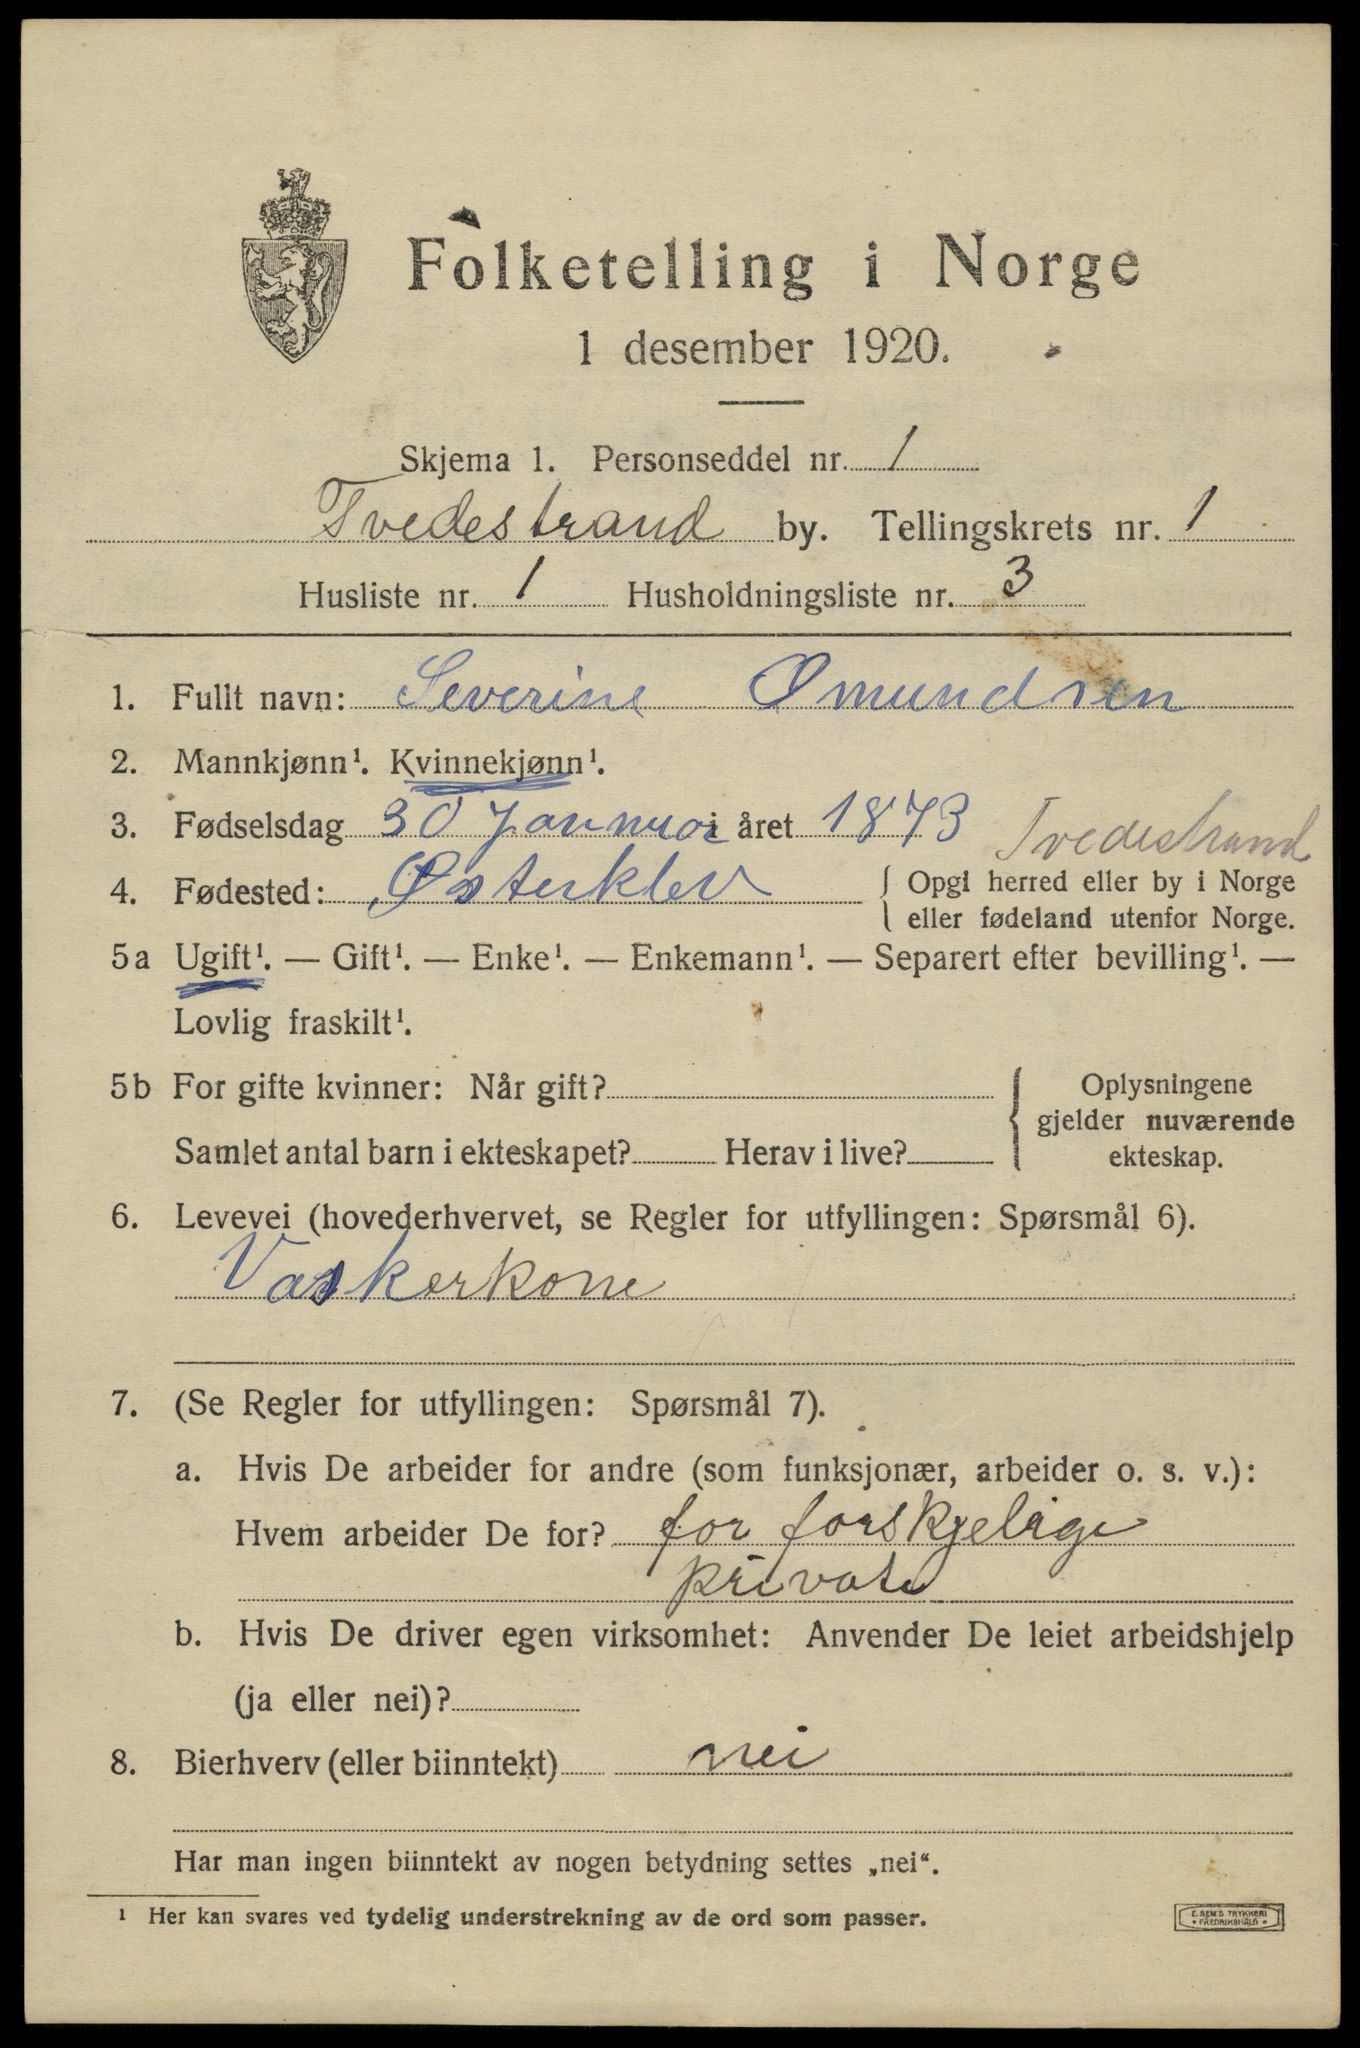 Folketelling i Norge
1 desember 1920.
Skjema 1. Personseddel nr. 1
Tvedestrand by. Tellingskrets nr. 1
Husliste nr. 1 Husholdningsliste nr. 3
1. Fullt navn: Severine Omundsen
2. Mannkjønn¹. Kvinnekjønn¹.
3. Fødselsdag 30 Januar i året 1873 Tvedestrand
4. Fødested: Østerklev { Opgi herred eller by i Norge
eller fødeland utenfor Norge.
5a Ugift¹. — Gift¹. — Enke¹. — Enkemann¹. — Separert efter bevilling¹. —
Lovlig fraskilt¹.
5b For gifte kvinner: Når gift? { Oplysningene
gjelder nuværende
Samlet antal barn i ekteskapet? Herav i live? ekteskap.
6. Levevei (hovederhvervet, se Regler for utfyllingen: Spørsmål 6).
Vaskerkone
7. (Se Regler for utfyllingen: Spørsmål 7).
a. Hvis De arbeider for andre (som funksjonær, arbeider o. s. v.):
Hvem arbeider De for? for forskjelige
private
b. Hvis De driver egen virksomhet: Anvender De leiet arbeidshjelp
(ja eller nei)?
8. Bierhverv (eller biinntekt) nei
Har man ingen biinntekt av nogen betydning settes „nei“.
¹ Her kan svares ved tydelig understrekning av de ord som passer.
E. SEM'S TRYKKERI
• FREDRIKSHALD •